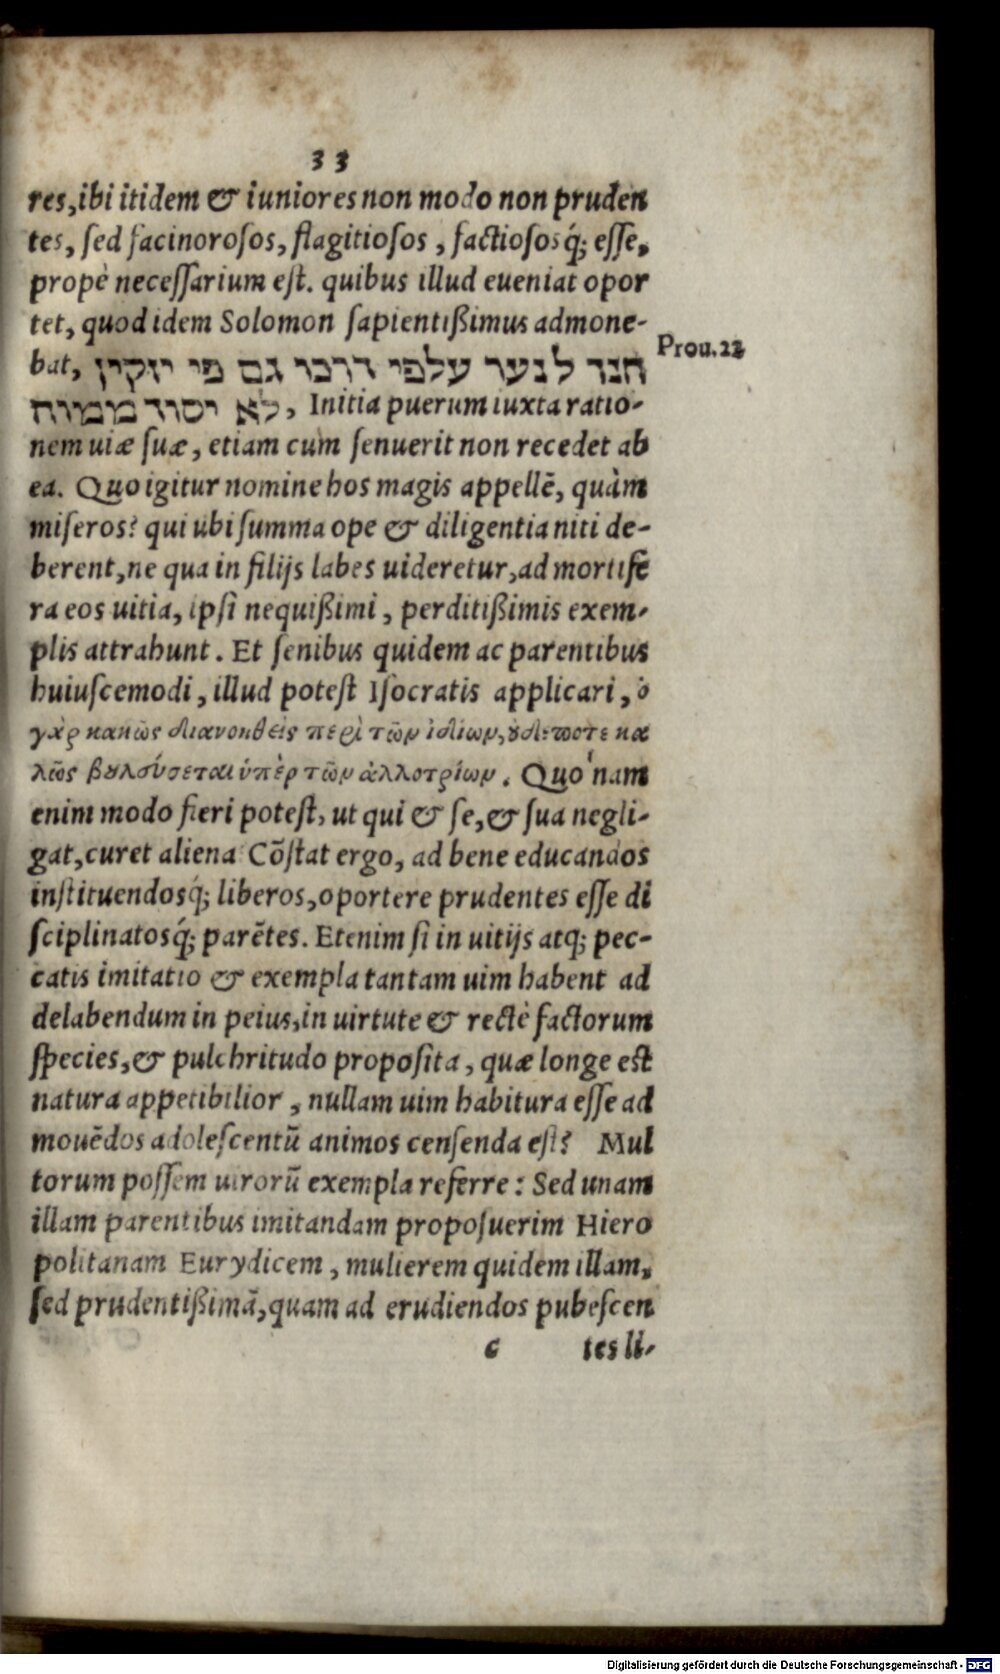 33
res, ibi itidem & iuniores non modo non pruden
tes, sed facinorosos, flagitiosos, factiososq́; esse,
propè necessarium est. quibus illud eueniat opor
tet, quod idem Solomon sapientißimus admone-
bat, חנך לנער עלפי דרכו גם כי יזקין
Prou. 22
לא יסור ממוה, Initia puerum iuxta ratio-
nem uiæ suæ, etiam cum senuerit non recedet ab
ea. Quo igitur nomine hos magis appellē, quàm
miseros? qui ubi summa ope & diligentia niti de-
berent, ne qua in filijs labes uideretur, ad mortife
ra eos uitia, ipsi nequißimi, perditißimis exem-
plis attrahunt. Et senibus quidem ac parentibus
huiuscemodi, illud potest Isocratis applicari, ὁ
γὰρ κακῶς διανοηθεὶς περὶ τῶν ἰδίων, ȣδέποτε κα
λῶς βȣλεύσεται ὑπὲρ τῶν ἀλλοτρίων. Quo'nam
enim modo fieri potest, ut qui & se, & sua negli-
gat, curet aliena? Cōstat ergo, ad bene educandos
instituendosq́; liberos, oportere prudentes esse di
sciplinatosq́; parētes. Etenim si in uitijs atq; pec-
catis imitatio & exempla tantam uim habent ad
delabendum in peius, in uirtute & rectè factorum
species, & pulchritudo proposita, quæ longe est
natura appetibilior, nullam uim habitura esse ad
mouēdos adolescentū animos censenda est? Mul
torum possem uirorū exempla referre: Sed unam
illam parentibus imitandam proposuerim Hiero
politanam Eurydicem, mulierem quidem illam,
sed prudentißimā, quam ad erudiendos pubescen
c tes li-
Digitalisierung gefördert durch die Deutsche Forschungsgemeinschaft - DFG